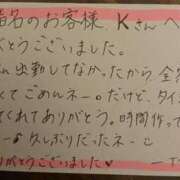 指名のお客様、Kさんへ
がとうございました。
ム出勤してなかったから、全然
くてごめんネー。だけど、タイ
くれてありがとう。時間作って
ー♪久しぶりだったネーこ
りがとうございました♥